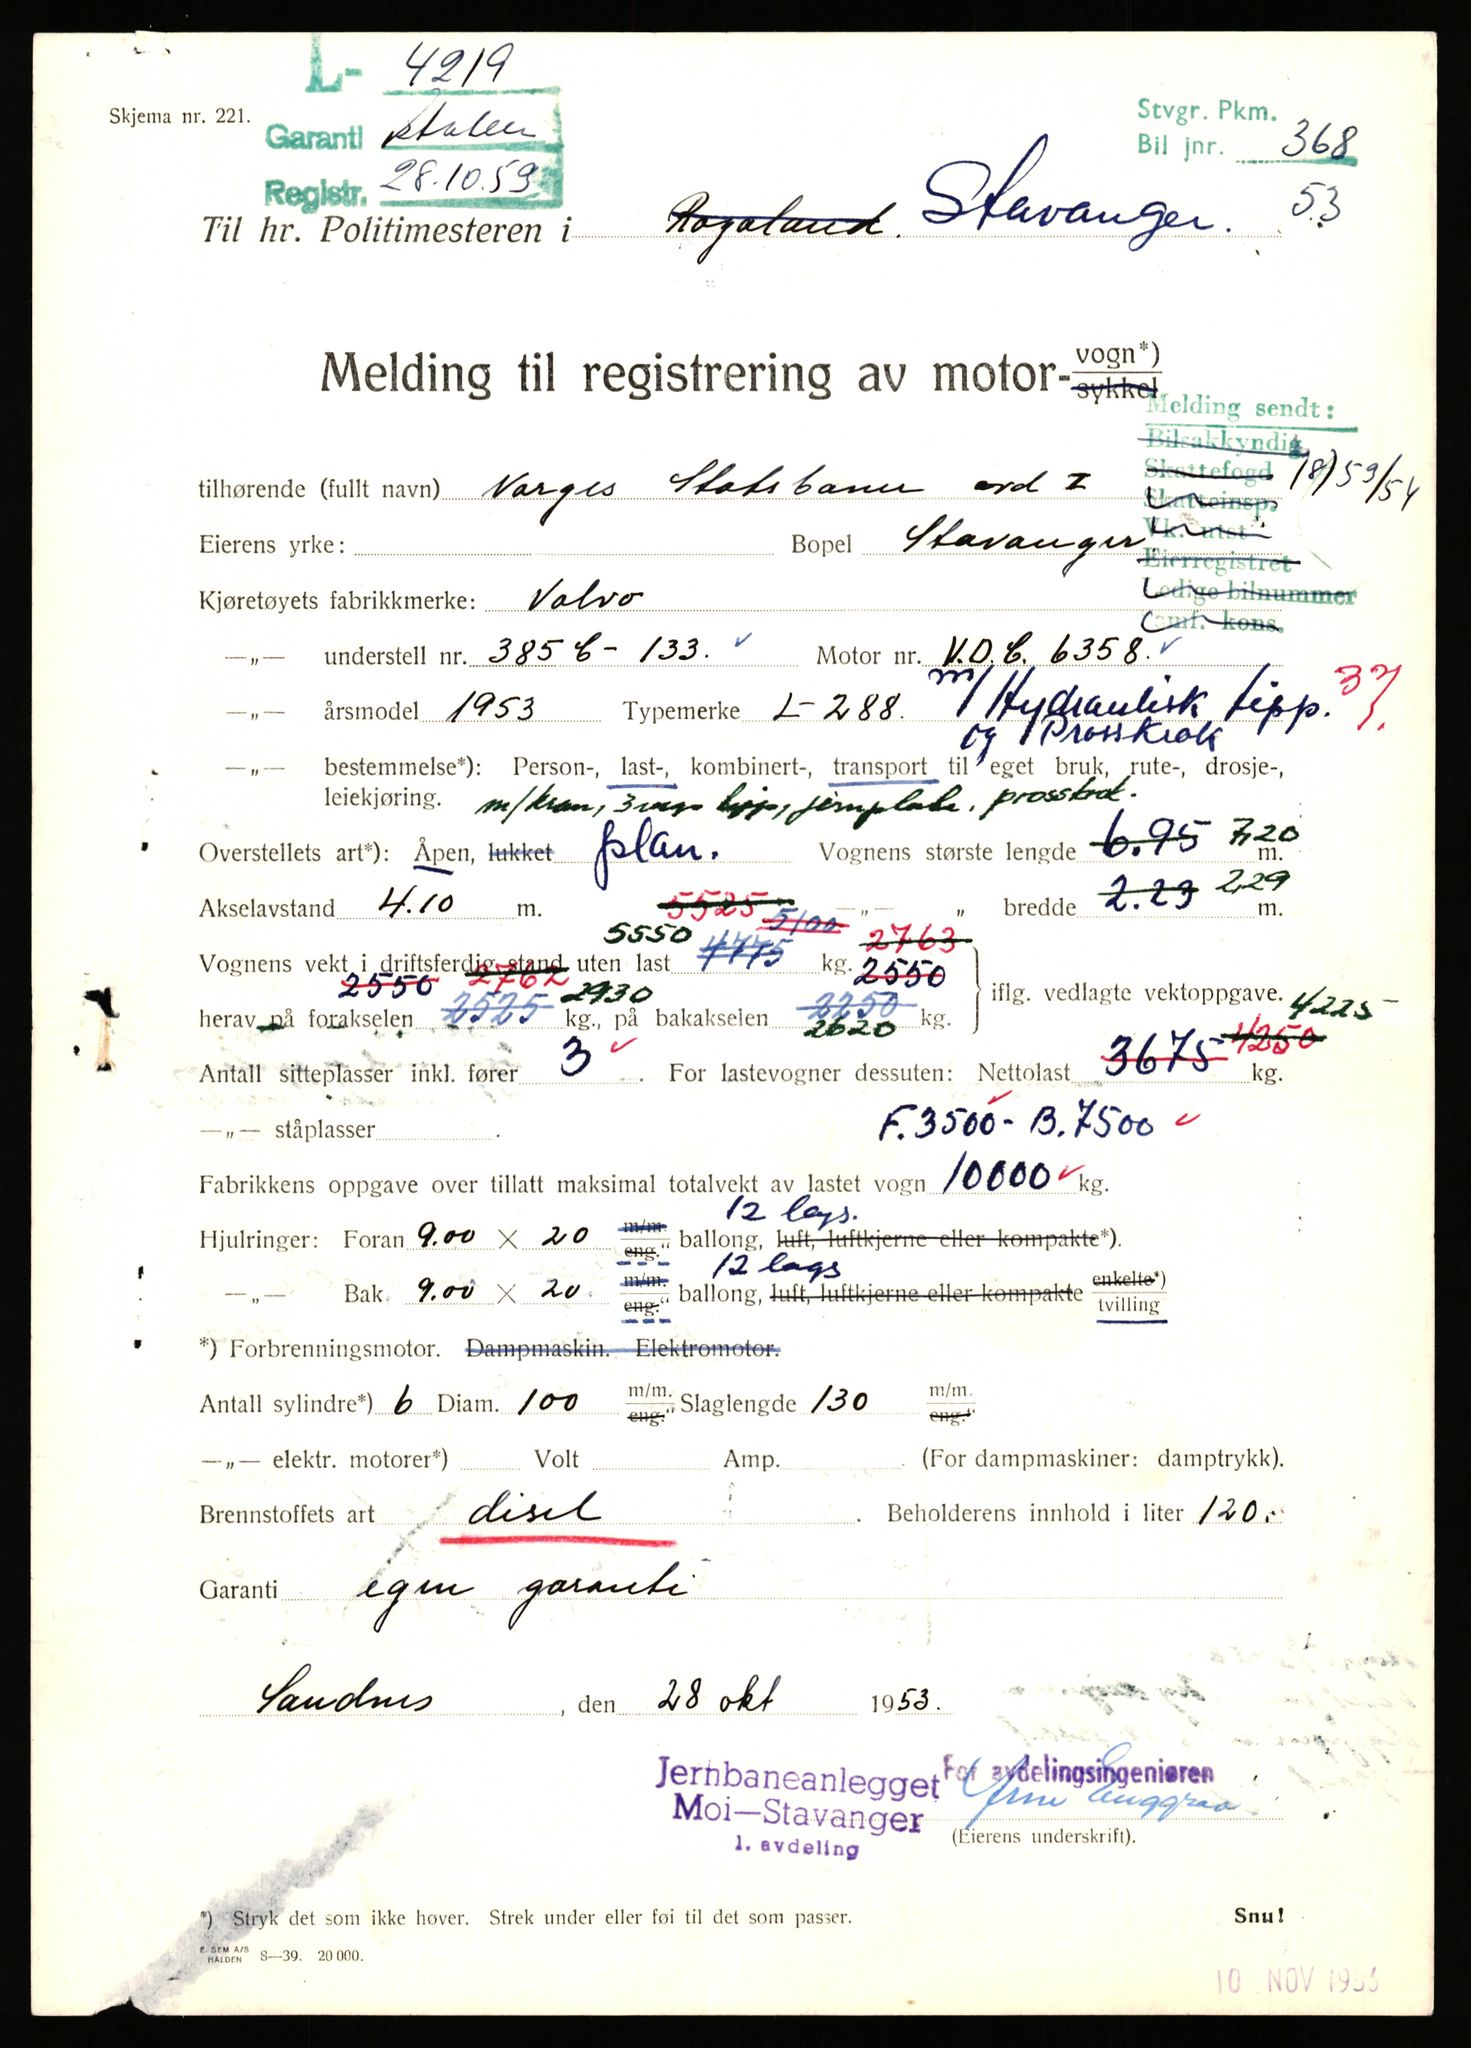 L- 4219
Skjema nr. 221.
Garanti staten
Registr. 28.10.53
Stvgr. Pkm.
Bil jnr. 368
53
Til hr. Politimesteren i Rogaland. Stavanger.
Melding til registrering av motor-vogn*)
sykkel
Melding sendt:
Bilsakkyndig
Skattefogd 18/53/54
Skatteinsp.
Vk. utst
Eierregistret
Ledige bilnummer
Samf. kons.
tilhørende (fullt navn) Norges Statsbaner avd I
Eierens yrke: Bopel Stavanger
Kjøretøyets fabrikkmerke: Volvo
—„— understell nr. 385 C - 133. Motor nr. V.D.C. 6358.
—„— årsmodel 1953 Typemerke L-288. m/Hydraulisk tipp.
og Prosskrok
—„— bestemmelse*): Person-, last-, kombinert-, transport til eget bruk, rute-, drosje-,
leiekjøring. m/kran, 3 vegs tipp, jernplate, prosskrok.
Overstellets art*): Åpen, lukket plan. Vognens største lengde 6.95 7,20 m.
Akselavstand 4.10 m. —„— „ bredde 2.23 2,29 m.
5525 5100
5550 4775 2763
Vognens vekt i driftsferdig stand uten last kg. 2550
2550 2762 2930
herav på forakselen 2525 kg., på bakakselen 2250 2620 kg. iflg. vedlagte vektoppgave.
4225-
4250
Antall sitteplasser inkl. fører 3 . For lastevogner dessuten: Nettolast 3675 kg.
—„— ståplasser . F.3500- B.7500
Fabrikkens oppgave over tillatt maksimal totalvekt av lastet vogn 10000 kg.
12 lags.
Hjulringer: Foran 9.00 × 20 m/m. eng." ballong, luft, luftkjerne eller kompakte*).
12 lags
—„— Bak 9.00 × 20 m/m. eng." ballong, luft, luftkjerne eller kompakte enkelte*) tvilling
*) Forbrenningsmotor. Dampmaskin. Elektromotor.
Antall sylindre*) 6 Diam. 100 m/m. eng." Slaglengde 130 m/m. eng."
—„— elektr. motorer*) Volt Amp. (For dampmaskiner: damptrykk).
Brennstoffets art disel . Beholderens innhold i liter 120.-
Garanti egen garanti
Sandnes , den 28 okt 1953.
Jernbaneanlegget
Moi—Stavanger
1. avdeling
For avdelingsingeniøren
(Eierens underskrift).
*) Stryk det som ikke høver. Strek under eller føi til det som passer.
Snu!
E. SEM A/S
HALDEN 8—39. 20 000.
10 NOV 1953